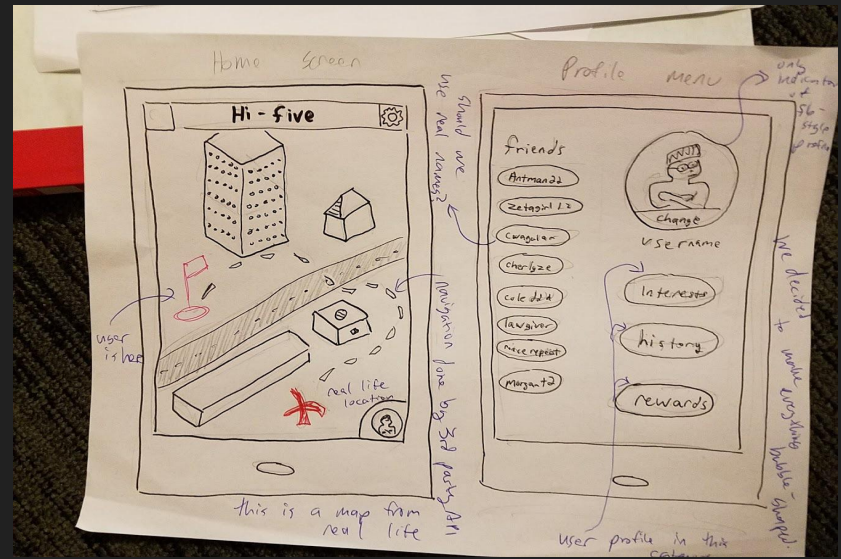 Home Screen
Hi-five
user
is here
real life
location
this is a map from
real life
navigation done by 3rd party API
should we
use real names?
Profile menu
friends
Antman22
zetagirl 12
cherlyze
lawgiver
morgant2
change
username
Interests
history
rewards
only
indicator
of
fb-
style
profile
we decided to make everything bubble-shaped
user profile in this